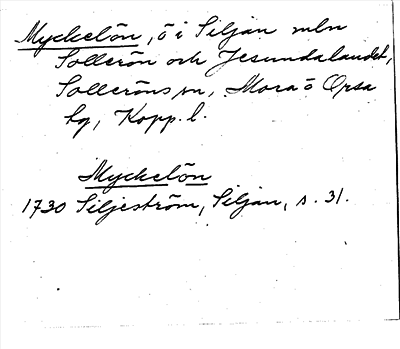 Myckelön, ö i Siljan mln
Sollerön och Jesundalandet,
Solleröns sn, Mora o Orsa
tg, Kopp. l.
Myckelön
1730 Siljeström, Siljan, s. 31.